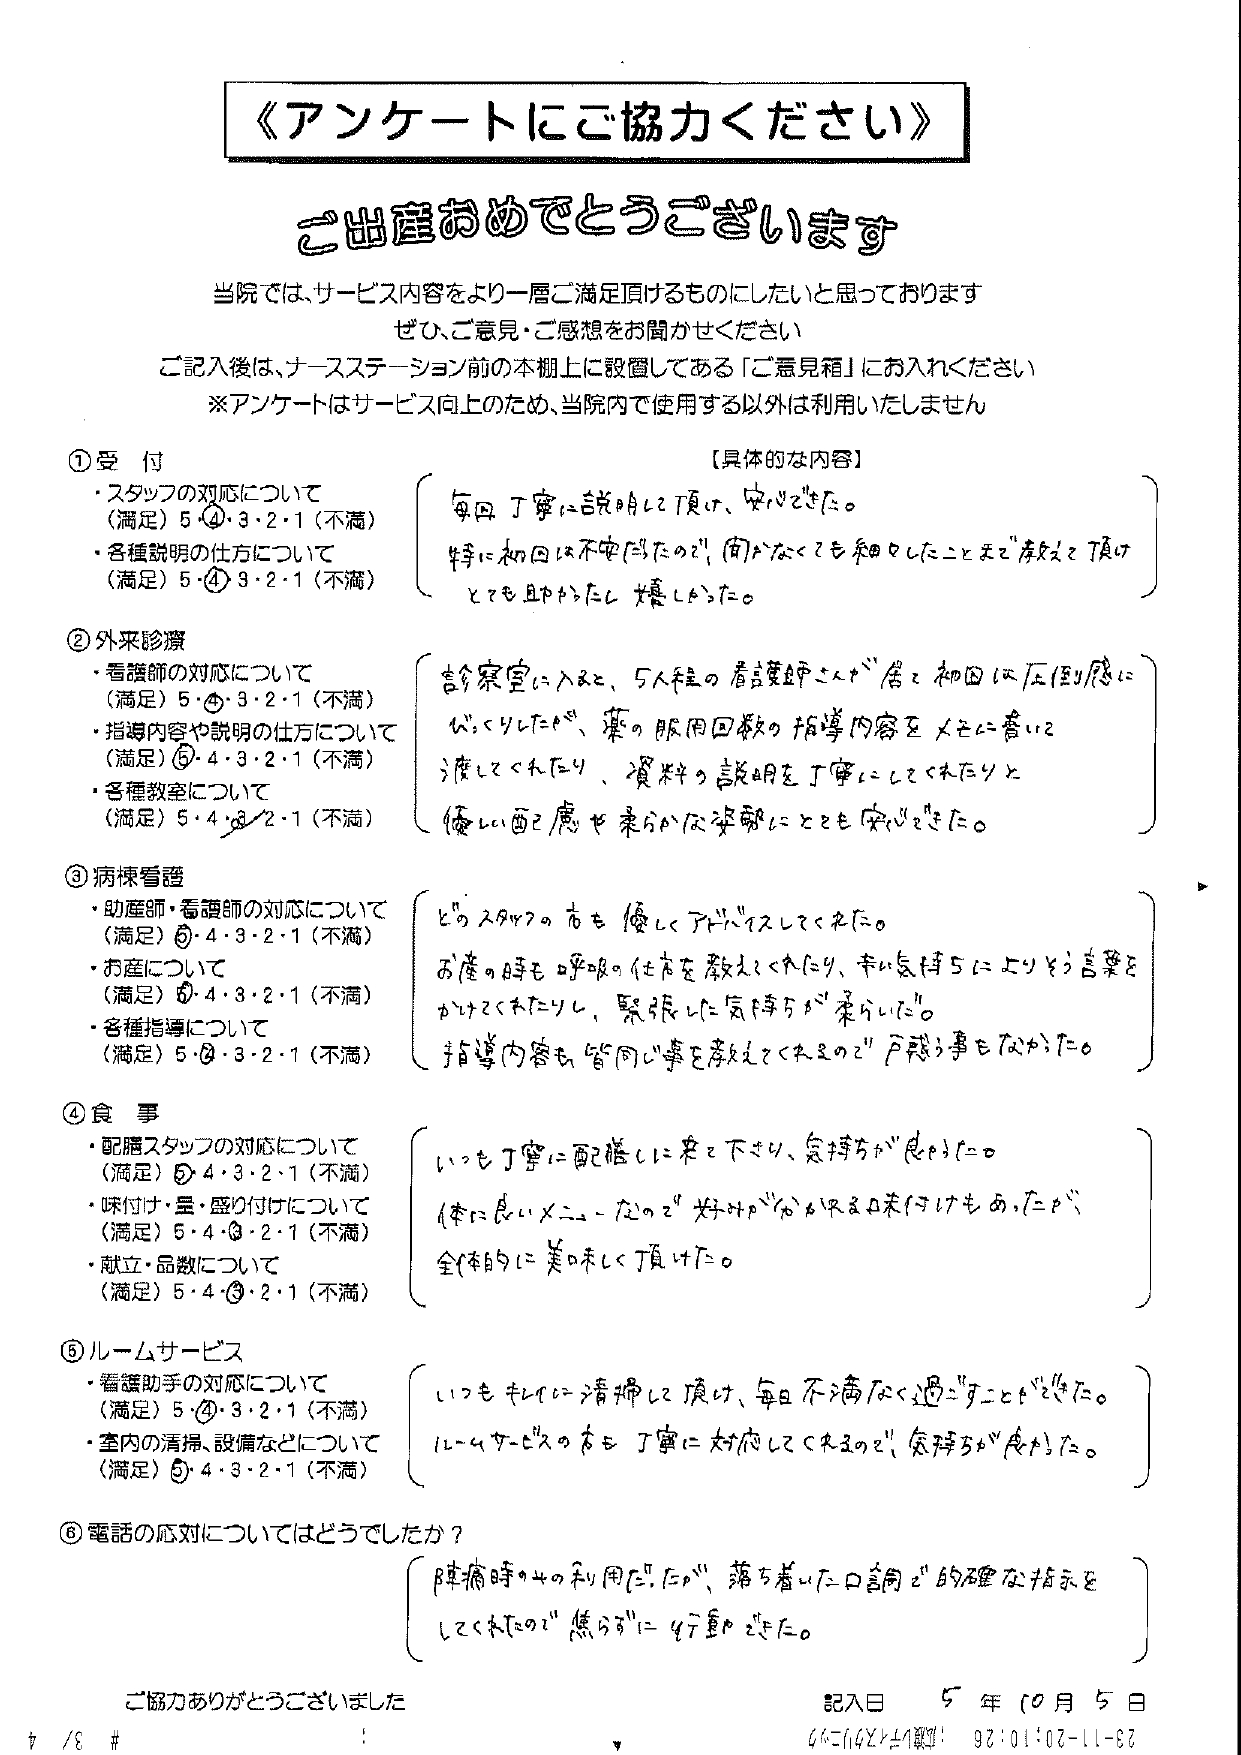 《アンケートにご協力ください》
ご出産おめでとうございます
当院では、サービス内容をより一層ご満足頂けるものにしたいと思っております
ぜひ、ご意見・ご感想をお聞かせください
ご記入後は、ナースステーション前の本棚上に設置してある「ご意見箱」にお入れください
※アンケートはサービス向上のため、当院内で使用する以外は利用いたしません
①受　付
【具体的な内容】
・スタッフの対応について
（満足）5・4・3・2・1（不満）
・各種説明の仕方について
（満足）5・4・3・2・1（不満）
毎回 丁寧に説明して頂け、安心できた。
特に初回は不安だったので、聞かなくても細々したことまで教えて頂け
とても助かったし 嬉しかった。
②外来診療
・看護師の対応について
（満足）5・4・3・2・1（不満）
・指導内容や説明の仕方について
（満足）5・4・3・2・1（不満）
・各種教室について
（満足）5・4・3・2・1（不満）
診察室に入ると、5人程の看護師さんが居て初回は圧倒感に
びっくりしたが、薬の服用回数の指導内容をメモに書いて
渡してくれたり、資料の説明を丁寧にしてくれたりと
優しい配慮や柔らかな姿勢にとても安心できた。
③病棟看護
・助産師・看護師の対応について
（満足）5・4・3・2・1（不満）
・お産について
（満足）5・4・3・2・1（不満）
・各種指導について
（満足）5・4・3・2・1（不満）
どのスタッフの方も優しくアドバイスしてくれた。
お産の時も呼吸の仕方を教えてくれたり、辛い気持ちによりそう言葉を
かけてくれたりし、緊張した気持ちが柔らいだ。
指導内容も皆同じ事を教えてくれるので戸惑う事もなかった。
④食　事
・配膳スタッフの対応について
（満足）5・4・3・2・1（不満）
・味付け・量・盛り付けについて
（満足）5・4・3・2・1（不満）
・献立・品数について
（満足）5・4・3・2・1（不満）
いつも丁寧に配膳しに来て下さり、気持ちが良かった。
体に良いメニューなので好みが分かれる味付けもあったが、
全体的に美味しく頂けた。
⑤ルームサービス
・看護助手の対応について
（満足）5・4・3・2・1（不満）
・室内の清掃、設備などについて
（満足）5・4・3・2・1（不満）
いつもキレイに清掃して頂け、毎日不満なく過ごすことができた。
ルームサービスの方も丁寧に対応してくれるので、気持ちが良かった。
⑥電話の応対についてはどうでしたか？
陣痛時のみの利用だったが、落ち着いた口調で的確な指示を
してくれたので焦らずに行動できた。
ご協力ありがとうございました
記入日　5年10月5日
23-11-20;10:26 ;広瀬レディスクリニック
# 3/ 4